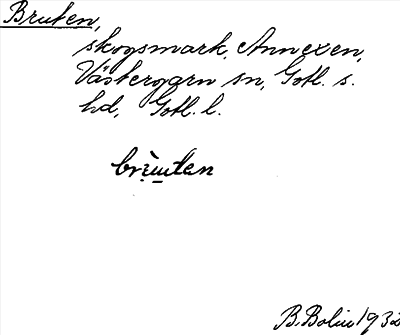 Bruten,
skogsmark, Annexen,
Västergarn sn, Gotl. s.
hd, Gotl. l.
brùu̲ten
B. Bolin 1932